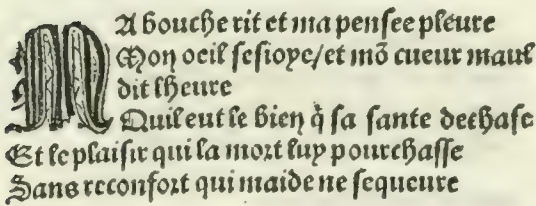 MA bouche rit et ma pensee pleure
Mon oeil sesioye/et mõ cueur maul
dit lheure
Quil eut le bien q̃ sa sante dechase
Et le plaisir qui la mort luy pourchasse
Sans reconfort qui maide ne sequeure